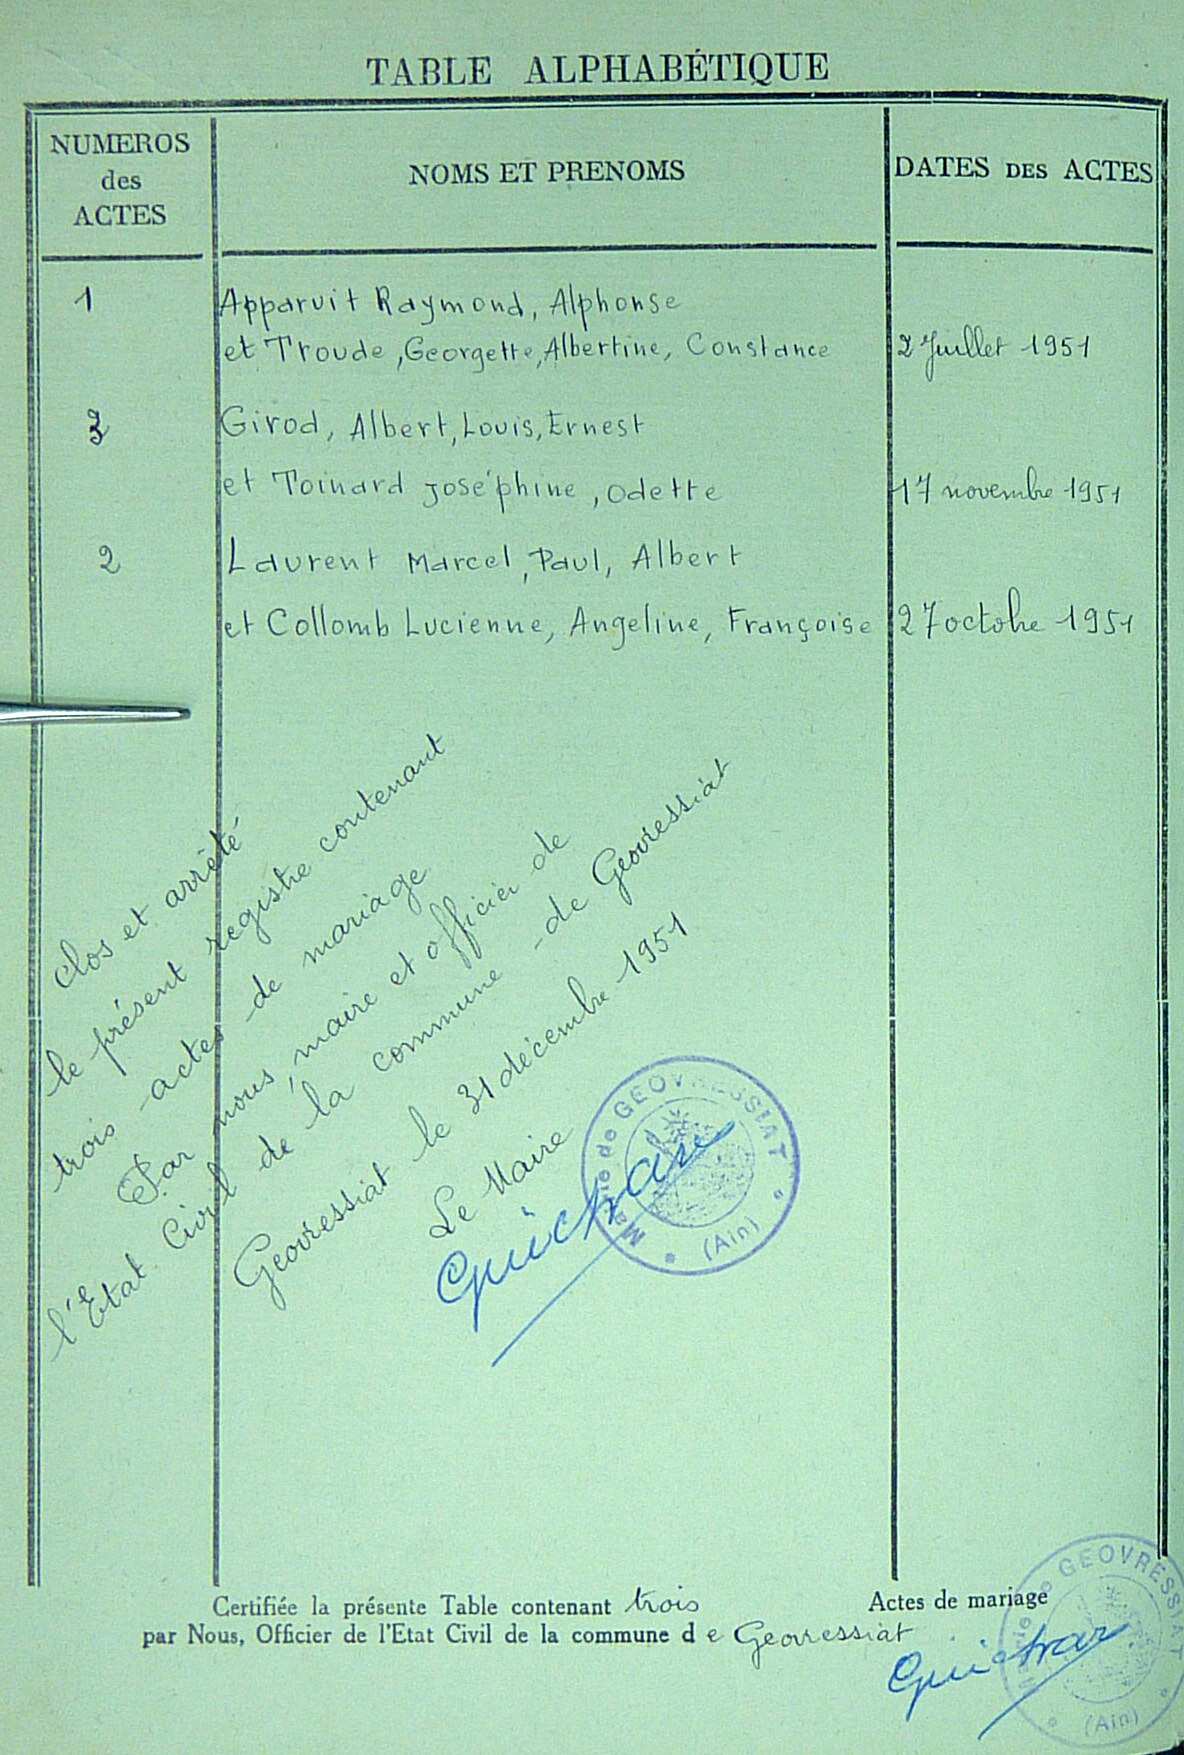 TABLE ALPHABÉTIQUE
NUMEROS
des
ACTES
NOMS ET PRENOMS
DATES DES ACTES
1
Apparuit Raymond, Alphonse
et Troude, Georgette, Albertine, Constance
2 Juillet 1951
3
Girod, Albert, Louis, Ernest
et Toinard Joséphine, Odette
17 novembre 1951
2
Laurent Marcel, Paul, Albert
et Collomb Lucienne, Angeline, Françoise
27 octobre 1951
Clos et arrêté
le présent registre contenant
trois actes de mariage
Par nous, maire et officier de
l'Etat Civil de la commune de Geovressiat
Geovressiat le 31 décembre 1951
Le Maire
Mairie de GEOVRESSIAT
(Ain)
Certifiée la présente Table contenant trois Actes de mariage
par Nous, Officier de l'Etat Civil de la commune de Geovressiat
Mairie de GEOVRESSIAT
(Ain)